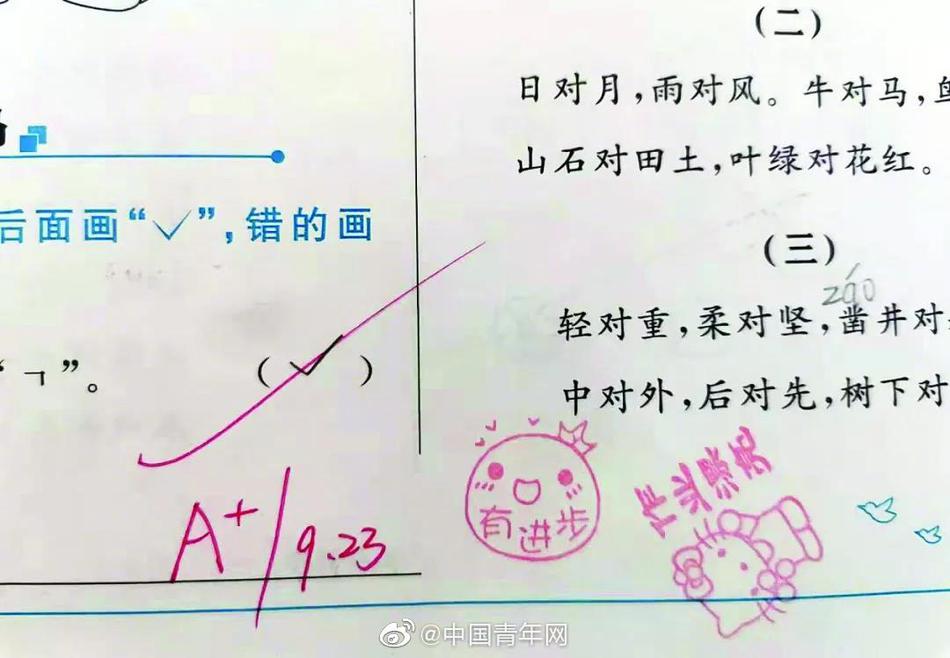 后面画“✓”，错的画
“ㄱ”。 （✓）
A+/9.23
（二）
日对月，雨对风。牛对马，
山石对田土，叶绿对花红。
（三）
záo
轻对重，柔对坚，凿井对
中对外，后对先，树下对
有进步
作业漂亮
@中国青年网